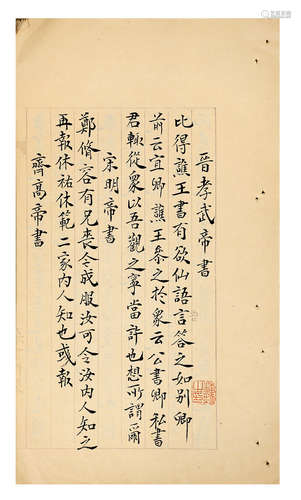 晉孝武帝書
比得譙王書有欲仙語言答之如別卿
前云宜卿譙王參之於象云公書卿私書
君輙從象以吾觀之寧當許也想所謂爾
宋明帝書
鄭脩容有兄喪令成服汝可令汝内人知之
再報休祐休範二家内人知也彧報
齊高帝書